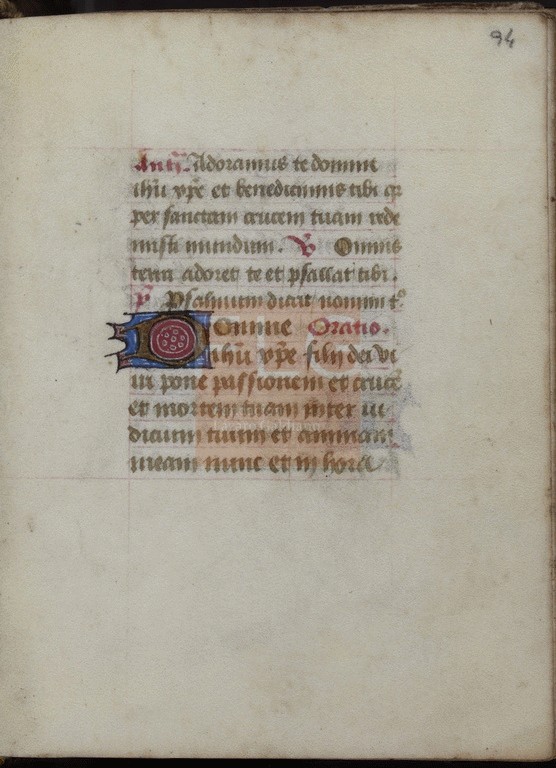 94
Antᷓ. Adoramus te domine
ihū xp̄e et benedicimus tibi qꝛ
per sanctam crucem tuam rede
misti mundum. ℣ Omnis
terra adoret te et psallat tibi.
℟ Psalmum dicat nomini tᵒ
Domine Oratio.
ihū xp̄e fili dei vi
ui pone passionem et crucē
et mortem tuam inter iu
dicium tuum et animam
meam nunc et in hora
FLG
Lázaro Galdiano